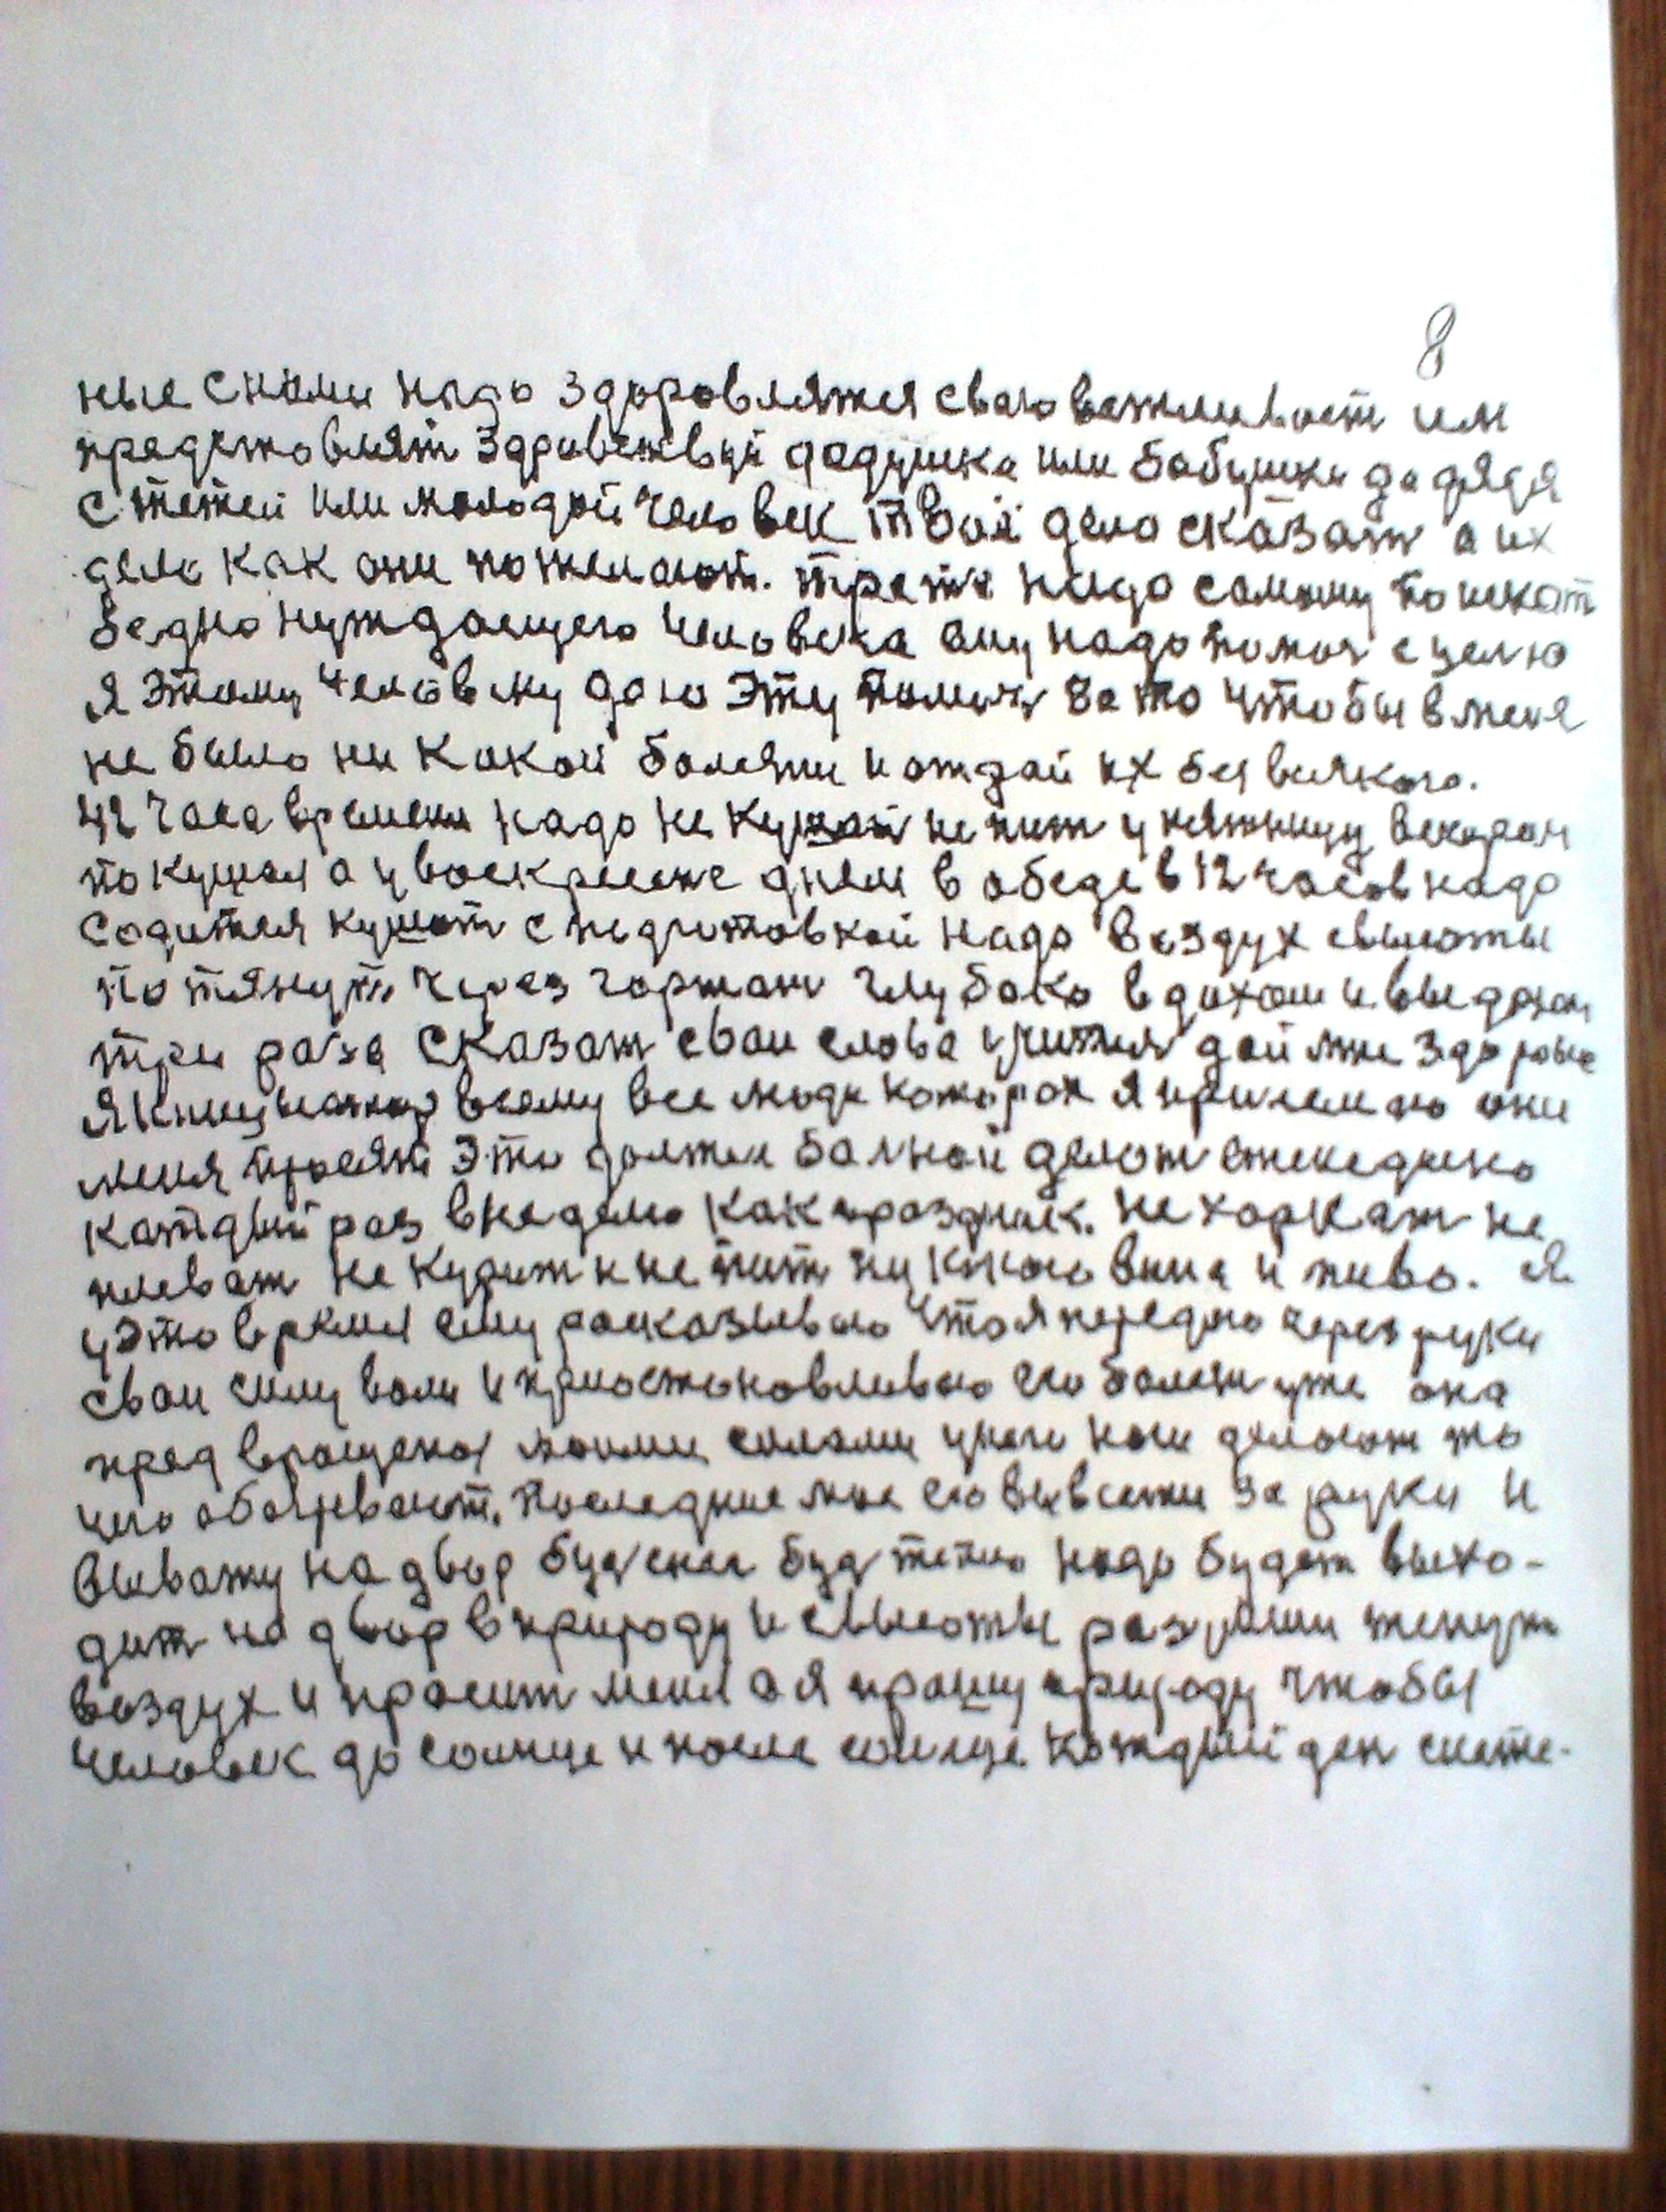 8
ные с ними надо здоровлятся сваю вежливаст им
представлят здраветвуй дедушка или бабушка да дядя
с тетей или молодой человек твоё дело сказат а их
дело как они пожелают. трете надо самому поискат
бедно нуждающего человека ему надо помоч с целю
я этому человеку даю эту помич за то чтобы в меня
не было ни какой болезни и отдай их без всякого.
42 часа времени надо не кушат не пит у пятницу вечером
покушал а у воскресене днем в обеде в 12 часов надо
садится кушат с подготовкой надо воздух с высоты
потянут через гортан глубоко вдохом и выдохом
три раза сказат сваи слова учител дай мне здоровие
всему все люди которых я принемаю они
меня просят это должен балной делат ежекедневно
каждый раз в неделю как праздник. не харкат не
плеват не курит и не пит ни какого вина и пиво. я
у это время ему расказываю что я передаю через руки
сваи силу воли и приостановливаю его болезн уже она
пред вращена моими силами у него ноги делают то
чего обогревает. последние мое его вывести за руки и
вывожу на двор буд снег буд тепло надо будет выхо-
дит на двор в природу и с высоты раз тенут
воздух и просит меня а я прошу природу чтобы
человек до солнце и после солнце каждый ден